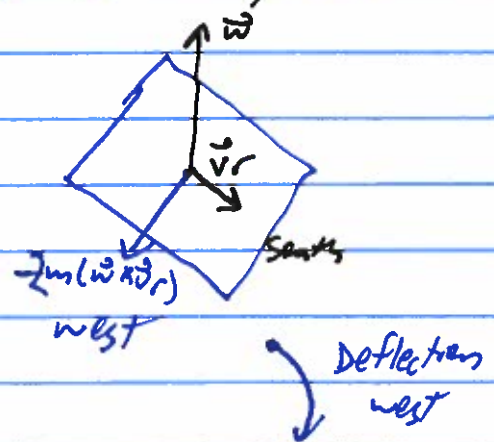 w⃗
v⃗r
South
-2m(w⃗ x v⃗r)
west
Deflection
west